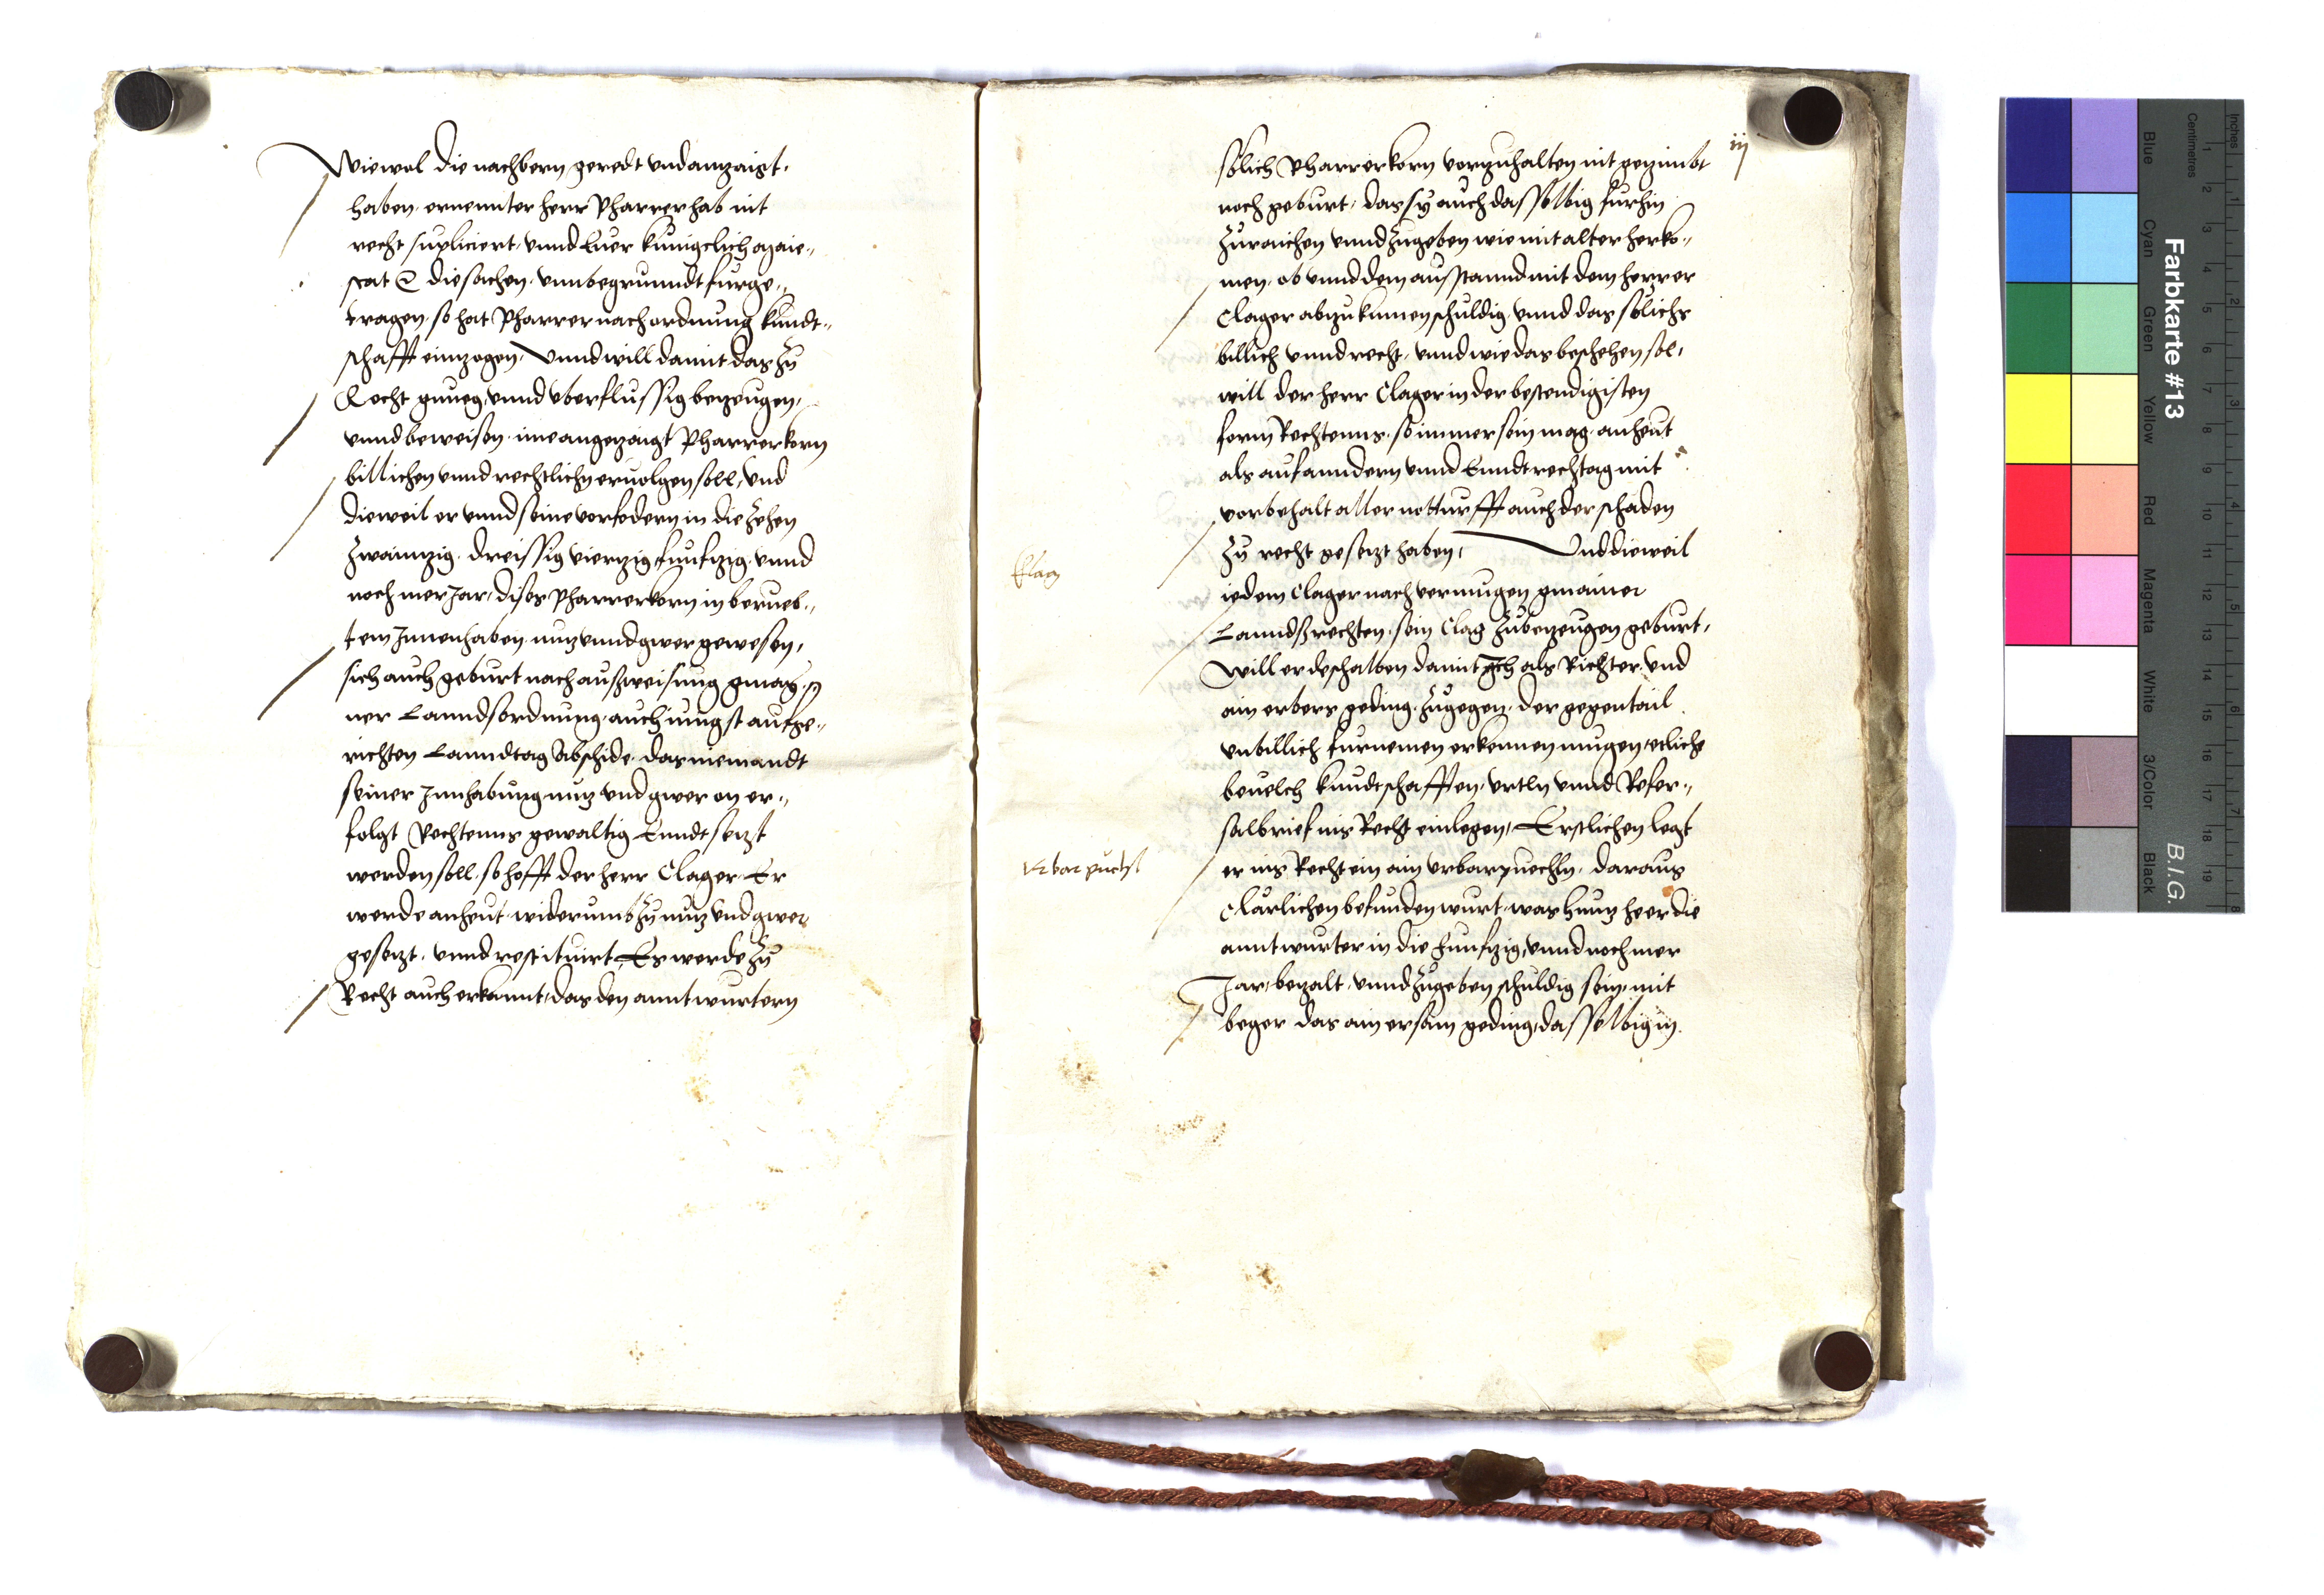 Wiewol die nachbern geredt vnd anzaigt,
haben, ernennter herr Pharrer hab nit
recht supliciert, vnnd Euer künigclich Maie„
stat &c die sachen, vnnbegrunndt furge„
tragen, so hat Pharrer nach ordnung kundt„
schafft einzogen, Vnnd will damit das zu
Recht gnueg, vnnd vberflussig bezeugen,
vnnd beweisen, ime angezaigt Pharrerkorn
billichen vnnd rechtlichn ervolgen soll, vnd
dieweil er vnnd seine vorfodern in die zehen
zwainzig, dreissig vierzig funfzig, vnnd
noch mer Jar, dises Pharrerkorn in berueb„
tem Innenhaben, nuz vnnd gwer gewesen,
sich auch geburt nach außweisung gmay„
ner Lanndsordnung, auch iungst aufge„
richten Lanndtag Abschide, das niemandt
seiner Innhabung nuz vnd gwer on er„
folgt Rechtenns gewaltig Enndtsezt
werden soll, so hofft der herr Clager, Er
werde anheut, widerumb zu nuz vnd gwer
gesezt, vnnd restituirt, Es werde zu
Recht auch erkannt, das den anntwurtern
iij
solich Pharrerkorn vorzuhalten nit gezimbt
noch geburt, das sy auch dasselbig furhin
zuraichen vnnd zugeben wie mit alter herko„
men, ob vnnd dem ausstannd mit dem herrer
Clager abzukumen schuldig, vnnd das solichs
billich vnnd recht, vnnd wie das beschehen sol,
will der herr Clager in der bestendigisten
form Rechtenns, so immer sein mag, anheut
als auf anndern vnnd Enndtrechtag mit
vorbehalt aller notturfft auch der schaden
zu recht gesezt haben, Vnd dieweil
Clag
iedem Clager nach vermugen gmainer
Lanndßrechten, sein Clag zubezeugen geburt,
Will er deshalben damit Ich als Richter, vnd
ain erbers geding, zugegen, der gegentail
vnbillich furnemen erkennen mugen, etliche
beuelch kundtschafften, vrtln vnnd Refer„
salbrief ins Recht einlegen, Erstlichen legt
Vrbarpuechl
er ins Recht ein ain Vrbarpuechln, daraus
Clarlichen befunden wurt, was hunz heer die
anntwurter in die funfzig, vnnd noch mer
Jar, bezalt, vnnd zugeben schuldig sein, mit
beger das ain ersam geding, dasselbig in
Farbkarte #13
B.I.G.
Inches
Centimetres
Blue
Cyan
Green
Yellow
Red
Magenta
White
3/Color
Black